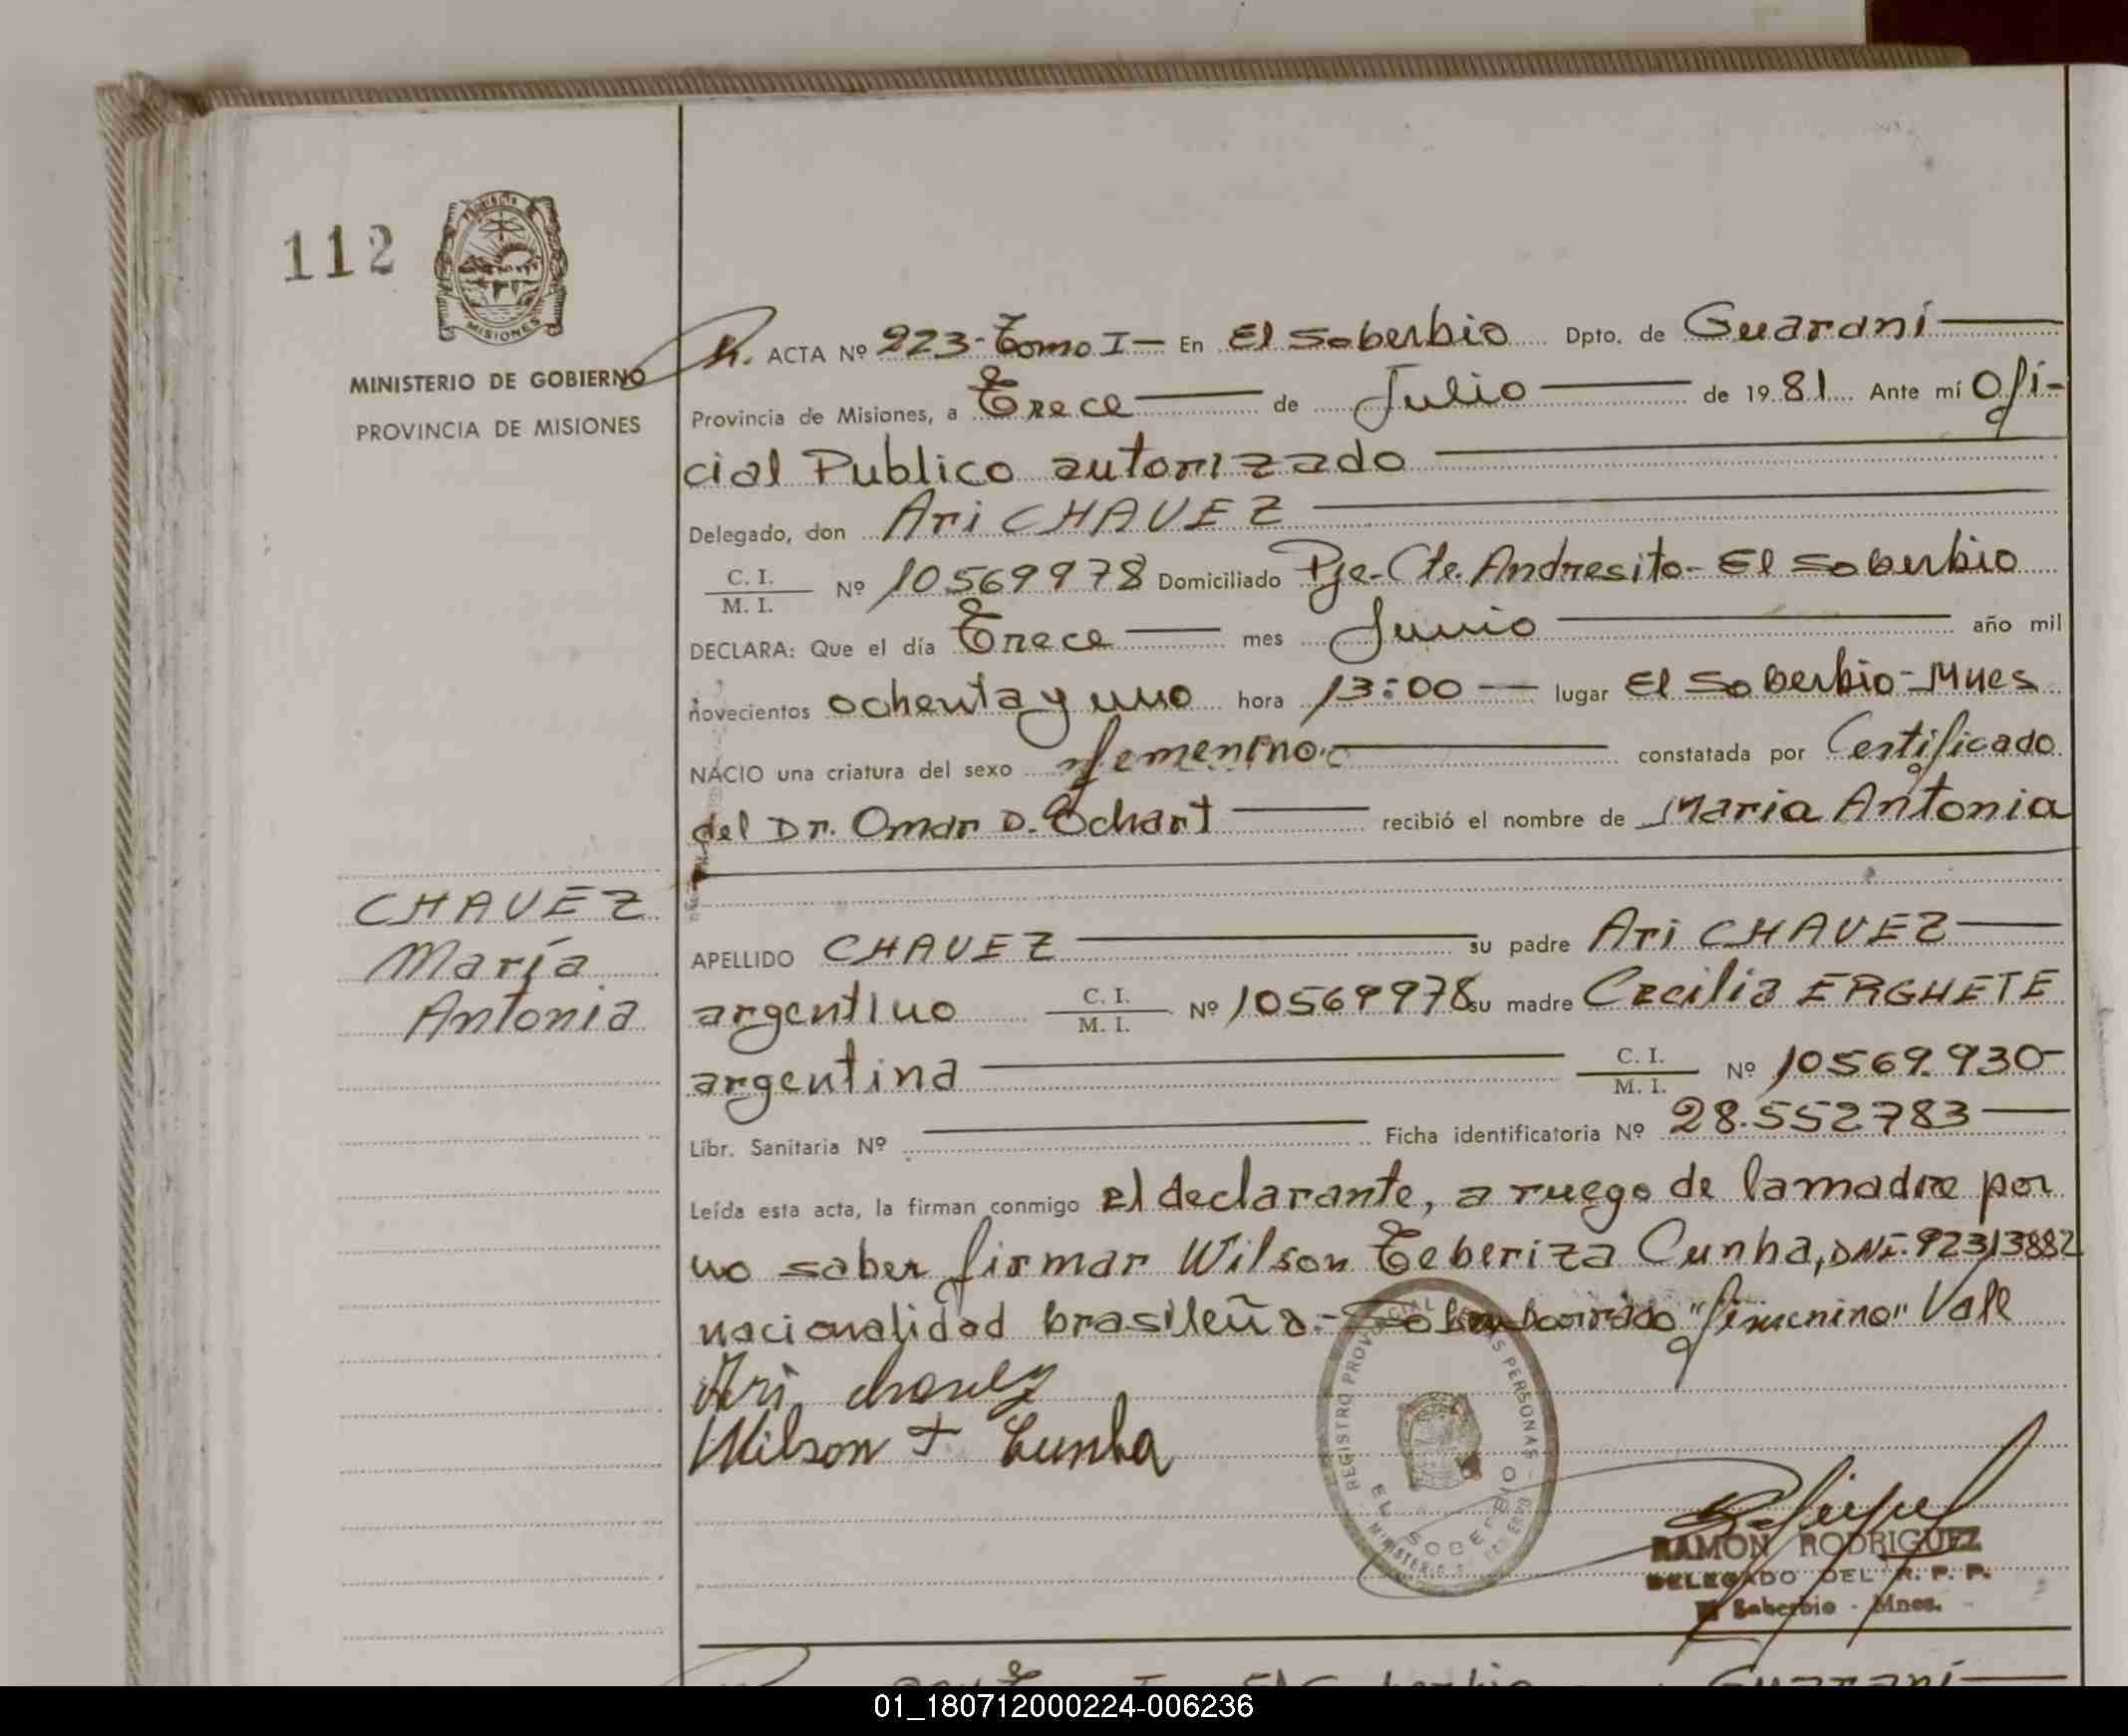 112
MISIONES
MINISTERIO DE GOBIERNO
PROVINCIA DE MISIONES
CHAVEZ
María
Antonia
N. ACTA Nº 223-Tomo I- En El Soberbio Dpto. de Guaraní
Provincia de Misiones, a Trece de Julio de 1981 Ante mí Ofi-
cial Publico autorizado
Delegado, don Ari CHAVEZ
C. I. / M. I. Nº 10569978 Domiciliado Pje-Cte. Andresito- El Soberbio
DECLARA: Que el día Trece mes Junio año mil
novecientos ochenta y uno hora 13:00 lugar El Soberbio-Mnes
NACIO una criatura del sexo femenino. constatada por Certificado
del Dr. Omar D. Ochart recibió el nombre de Maria Antonia
APELLIDO CHAVEZ su padre Ari CHAVEZ
argentino C. I. / M. I. Nº 10569978 su madre Cecilia ERGHETE
argentina C. I. / M. I. Nº 10569.930-
Libr. Sanitaria Nº Ficha identificatoria Nº 28.552783
Leída esta acta, la firman conmigo el declarante, a ruego de la madre por
no saber firmar Wilson Teberiza Cunha, DNI. 92313882
nacionalidad brasileña.- Sobreborrado "femenino" Vale
Ari chavez
Wilson T Cunha
REGISTRO PROVINCIAL DE LAS PERSONAS
EL SOBERBIO
RAMON RODRIGUEZ
DELEGADO DEL R. P. P.
El Soberbio - Mnes.
01_180712000224-006236